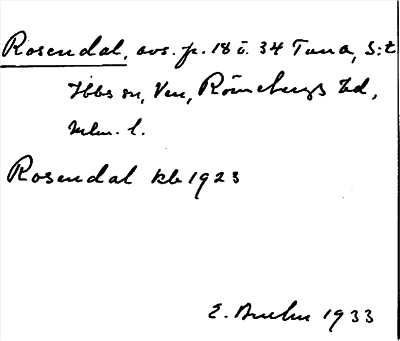 Rosendal, avs. fr. 18 o. 34 Tuna, S:t
Ibbs sn, Ven, Rönnebergs hd,
Mlm. l.
Rosendal kb 1923
E. 1933